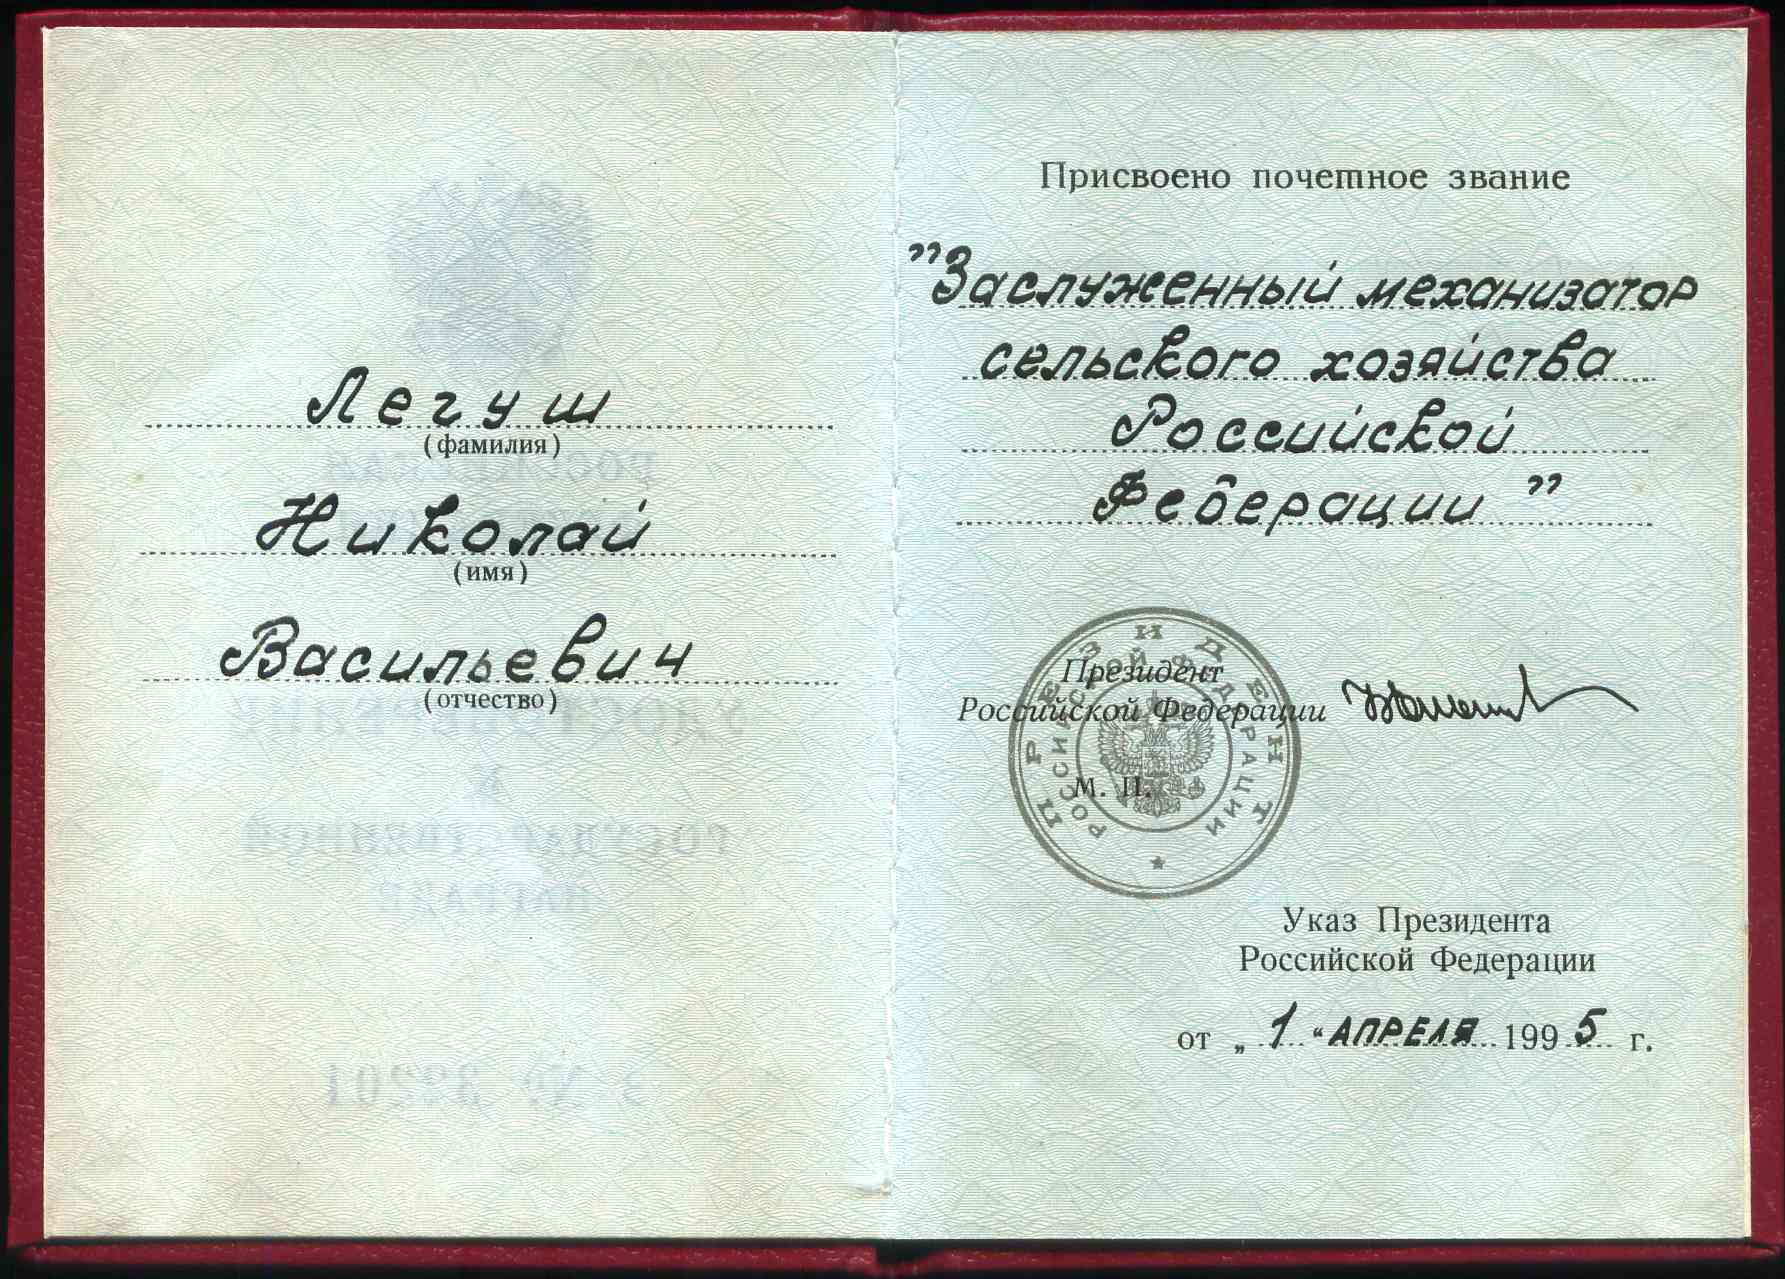 Легуш
(фамилия)
Николай
(имя)
Васильевич
(отчество)
Присвоено почетное звание
"Заслуженный механизатор
сельского хозяйства
Российской
Федерации"
Президент
Российской Федерации
М. П.
ПРЕЗИДЕНТ
РОССИЙСКОЙ ФЕДЕРАЦИИ
Указ Президента
Российской Федерации
от „ 1 “ АПРЕЛЯ 1995 г.